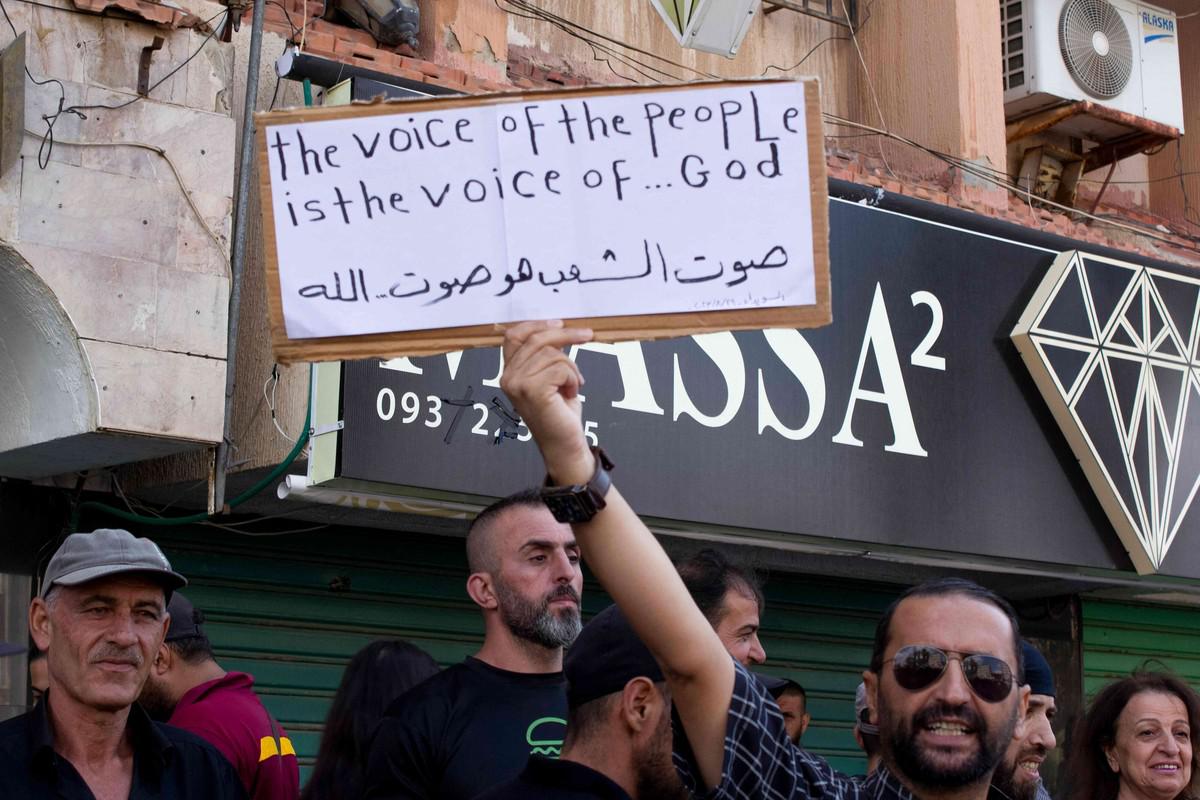 ALASKA
the voice of the people
is the voice of...God
صوت الشعب هو صوت...الله
السويداء
MASSA²
093